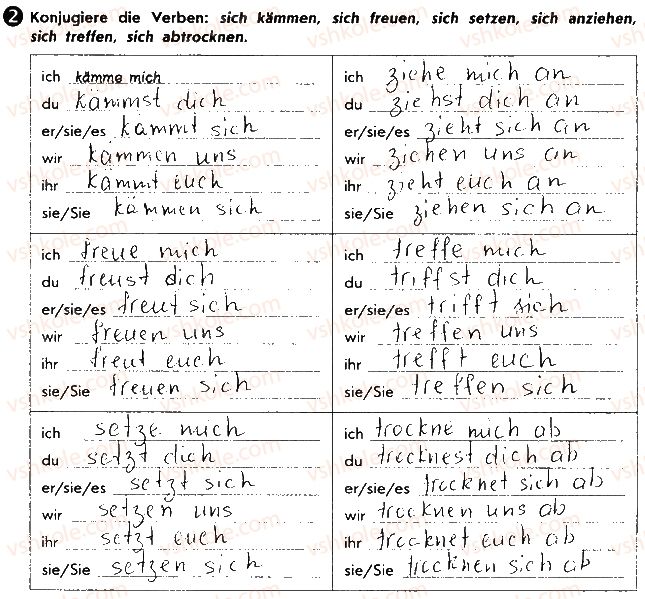 2 Konjugiere die Verben: sich kämmen, sich freuen, sich setzen, sich anziehen,
sich treffen, sich abtrocknen.
ich kämme mich
du kämmst dich
er/sie/es kämmt sich
wir kämmen uns
ihr kämmt euch
sie/Sie kämmen sich
ich ziehe mich an
du ziehst dich an
er/sie/es zieht sich an
wir ziehen uns an
ihr zieht euch an
sie/Sie ziehen sich an
ich freue mich
du freust dich
er/sie/es freut sich
wir freuen uns
ihr freut euch
sie/Sie freuen sich
ich treffe mich
du triffst dich
er/sie/es trifft sich
wir treffen uns
ihr trefft euch
sie/Sie treffen sich
ich setze mich
du setzt dich
er/sie/es setzt sich
wir setzen uns
ihr setzt euch
sie/Sie setzen sich
ich trockne mich ab
du trocknest dich ab
er/sie/es trocknet sich ab
wir trocknen uns ab
ihr trocknet euch ab
sie/Sie trocknen sich ab
vshkole.com